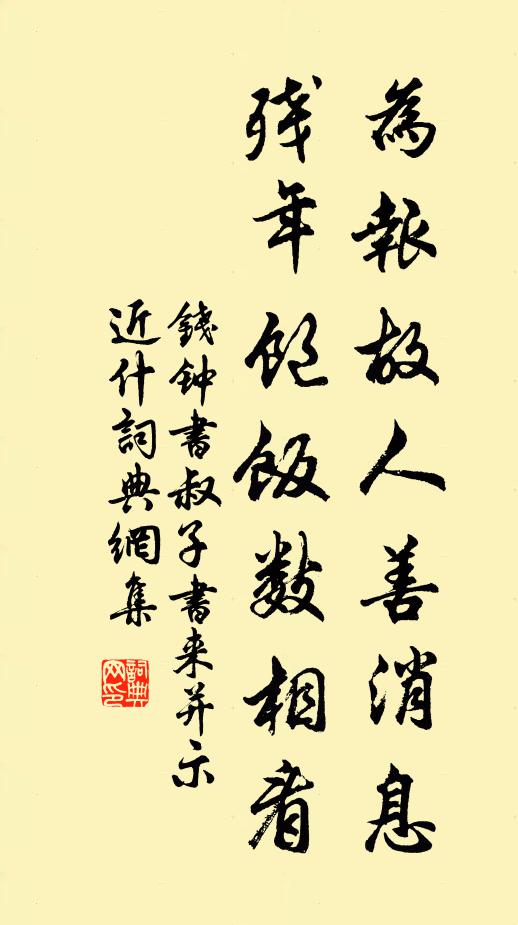 為報故人善消息
残年飽飯数相看
錢钟書叔子書来并示
近什詞典網集
詞典网印